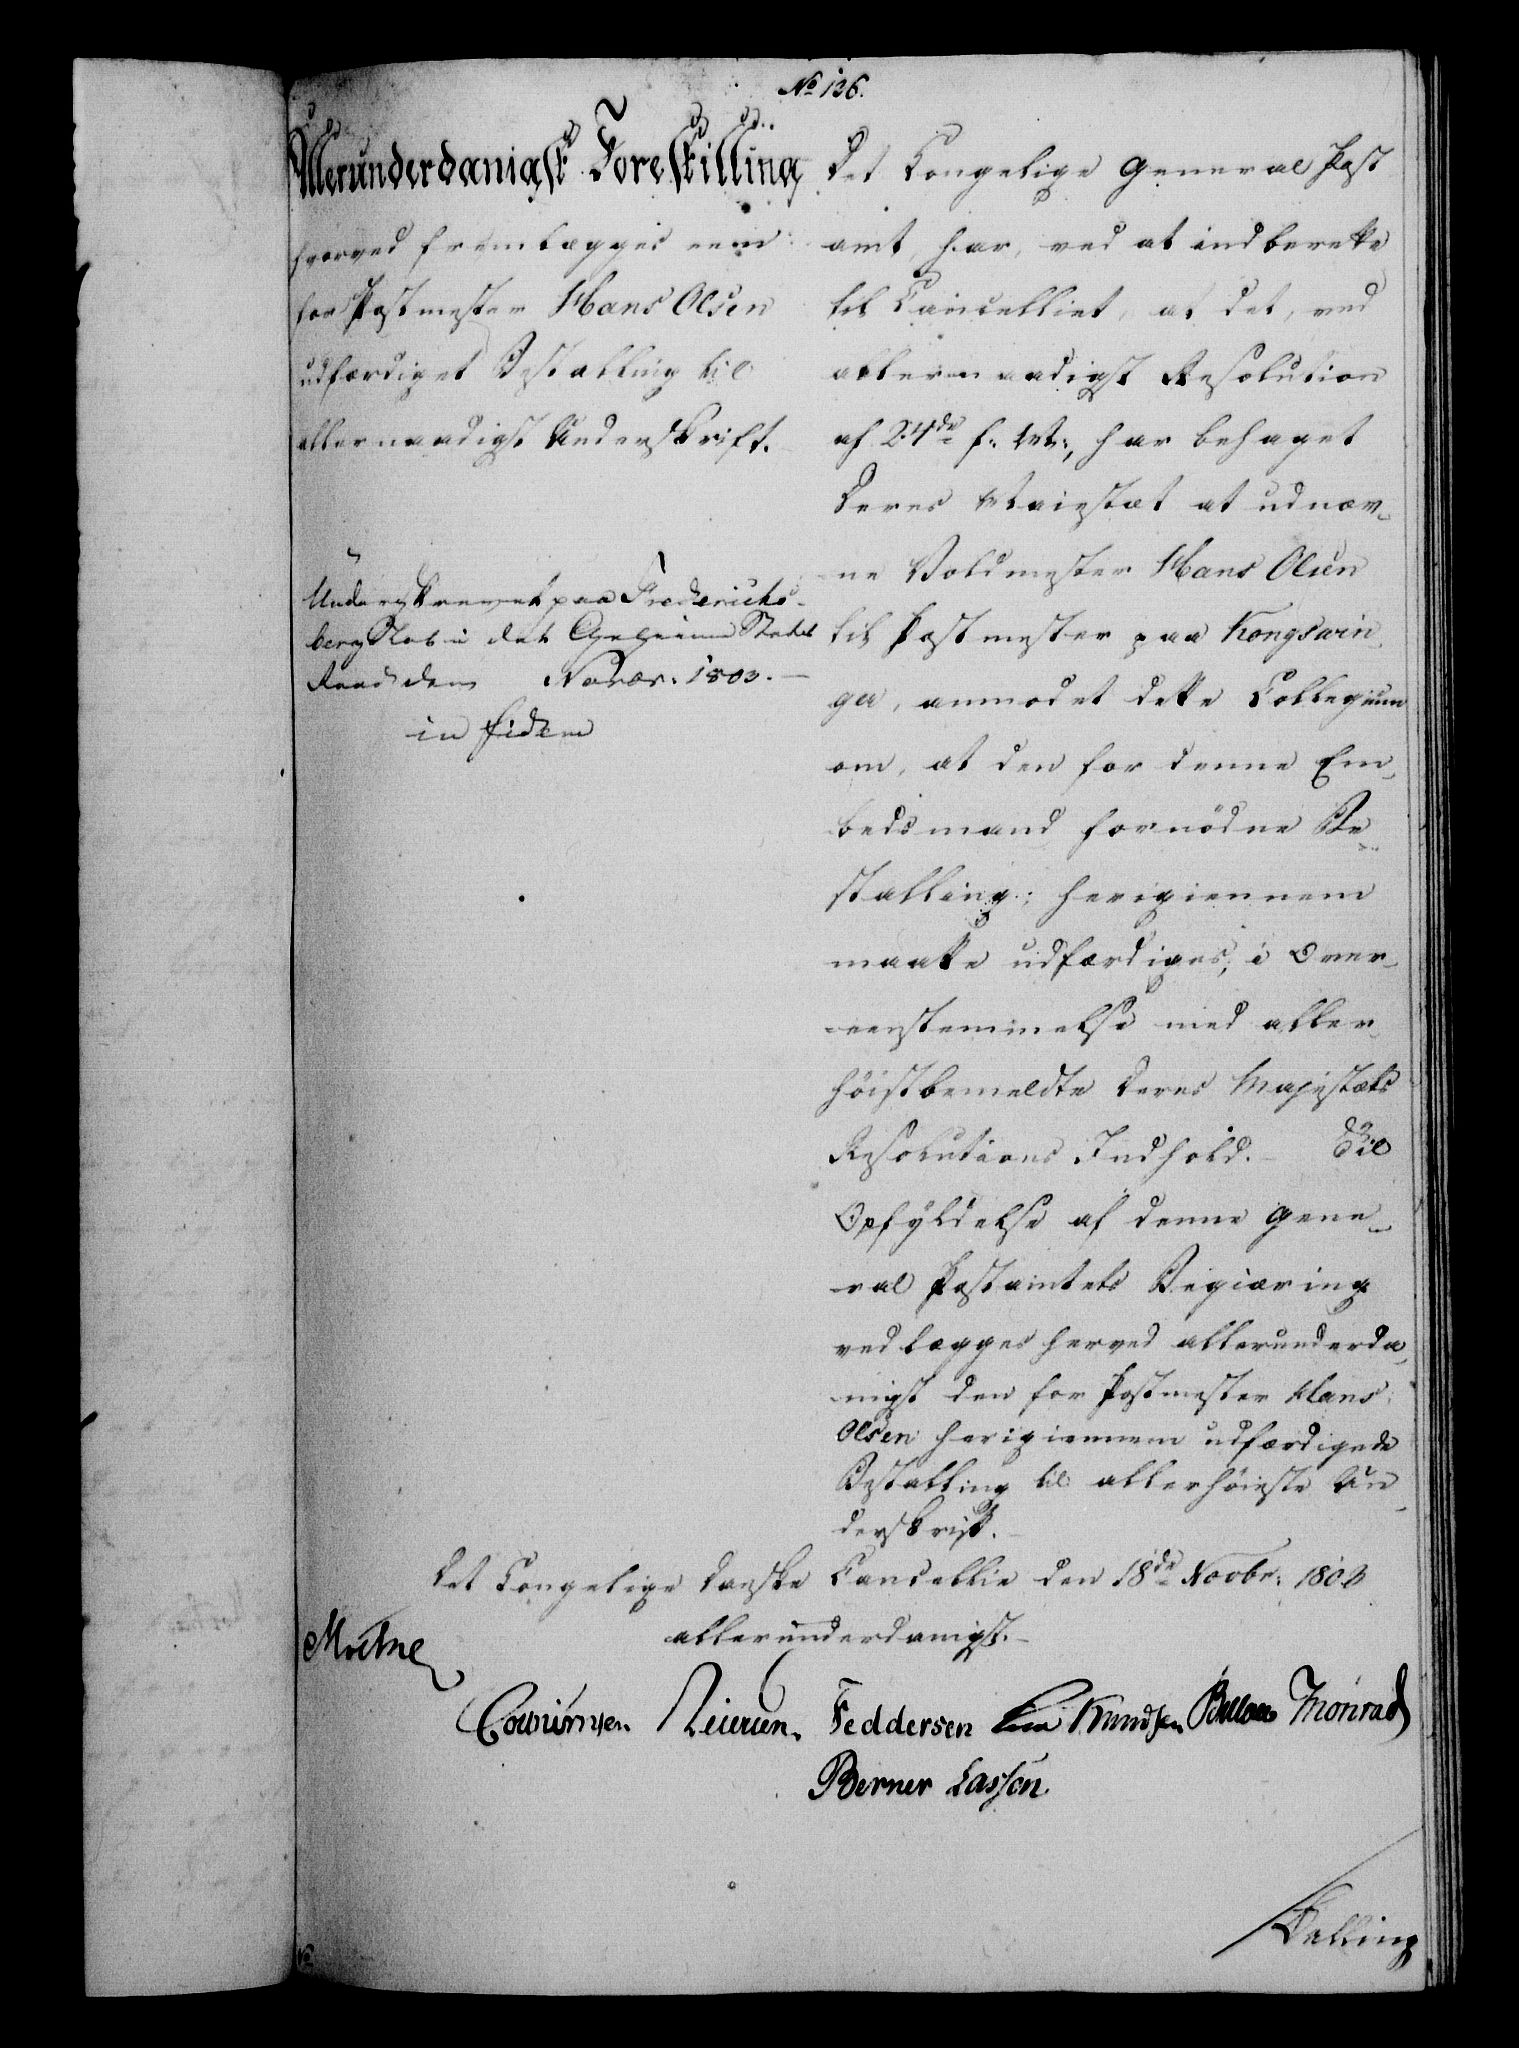 No 126.
Allerunderdanigst Forestilling
hvorved fremlægges een
for Postmester Hans Olsen
udfærdiget Bestalling til
allernaadigst Underskrift.
Underskrevet paa Friderichs-
berg Slot i det Geheime Stats
Raad den Novbr. 1803.
in fidem
Det Kongelige General Post
amt, har, ved at indberette
til Cancelliet, at det, ved
allernaadigst Resolution
af 24de f: M:, har behaget
Deres Maiestæt at udnæv-
ne Voldmester Hans Olsen
til Postmester paa Kongsvin-
ger, anmodet dette Collegium
om, at den for denne Em-
bedsmand fornødne Be-
stalling, herigiennem
maatte udfærdiges, i Over-
eenstemmelse med aller-
höistbemeldte Deres Majestæts
Resolutions Indhold. Til
Opfyldelse af denne Gene-
ral Postamtets Begiæring
vedlægges herved allerunderda-
nigst den for Postmester Hans
Olsen herigiennem udfærdigede
Bestalling til allerhöieste Un-
derskrift.
Det Kongelige Danske Cancellie den 18de Novbr: 1803
allerunderdanigst.
Moltke
Cold Feddersen Knudsen Bülow Monrad
Berner Lasson